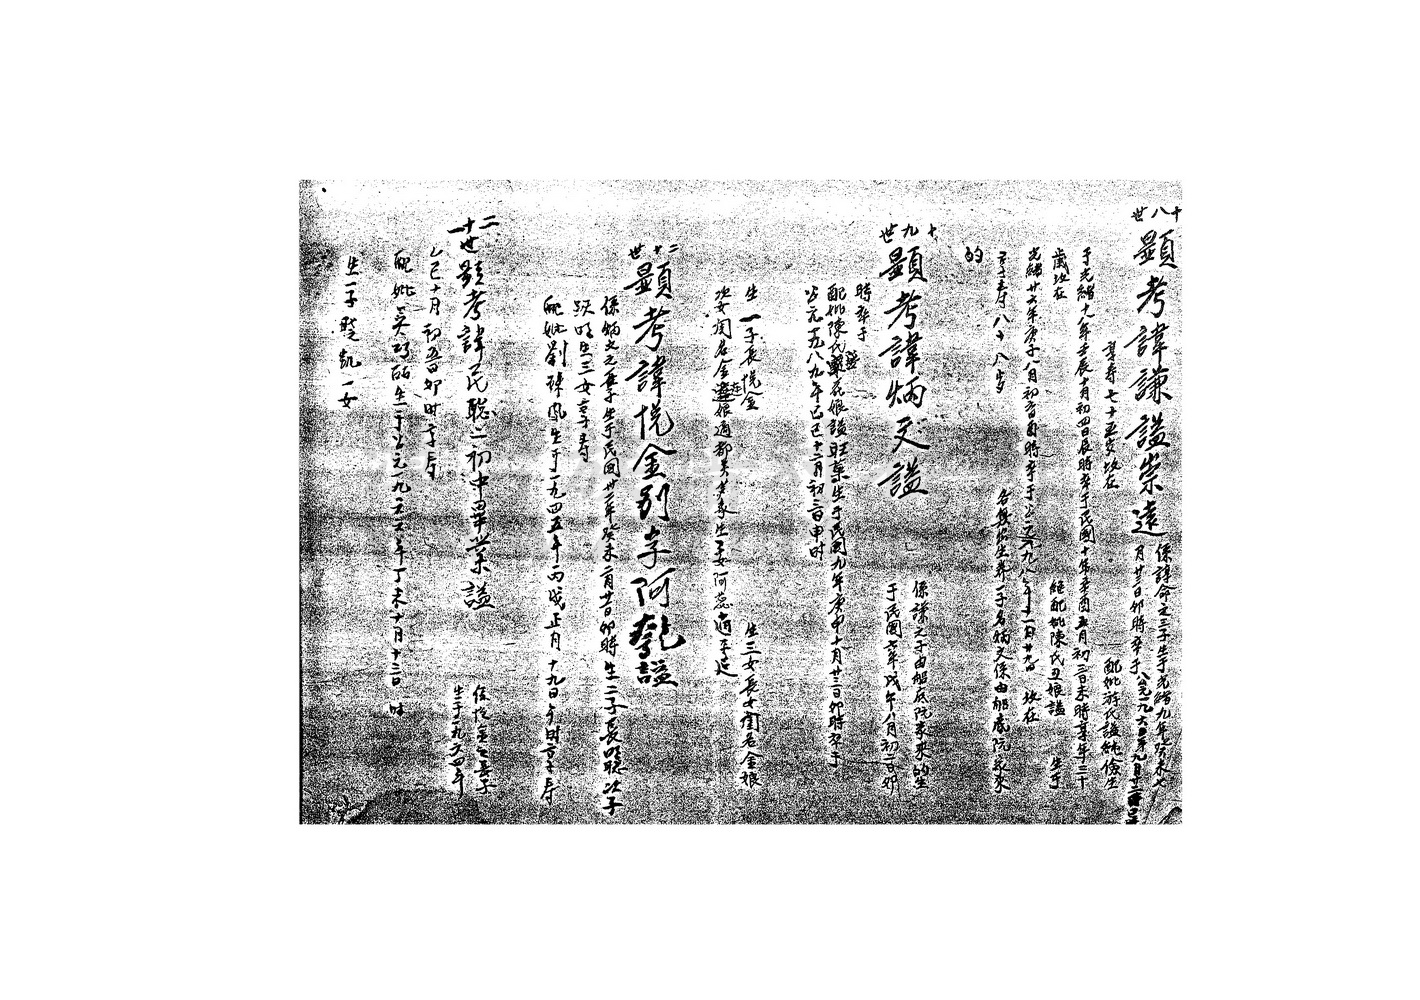 十八世
顯考諱謙謚崇遠
係諱命之三子生于光緒九年癸未七
月廿三日卯時卒于公元一九六〇年九月十二
享寿七十五岁坟在
配妣游氏謚純儉生
于光緒十八年壬辰十月初四日辰時卒于民國十年辛酉五月初三日未時享年三十
歲坟在
継配妣陳氏丑娘謚 生于
光緒廿六年庚子一月初六日酉時卒于公元一九八八年十一月廿九日 坟在
享寿八十八岁
名無所生养一子名炳文係由船底阮家來
的
十九世
顯考諱炳文謚
係謙之子由船底阮家來的生
于民國七年戊午八月初二日卯
時卒于
配妣陳氏葯娘謚旺葉生于民國九年庚申十一月廿三日卯時卒于
公元一九八九年己巳十二月初二日申时
生一子長悦金
生三女長女闺名金娘
次女闺名金蓮娘適都美
二十世
顯考諱悦金别字阿謚
係炳文之養子生于民国卅二年癸未二月廿日卯時生二子長明聪次子
跃明生三女享寿
配妣劉珠凤生于一九四五年丙戌正月十九日午时享寿
二十一世
顯考諱民聪二初中畢業謚
係悦金之長子
生于一九六四年
乙巳十月初五日卯时享寿
配妣吴丽生于公元一九六六年丁未十月十三日 时
生一子楚凱一女